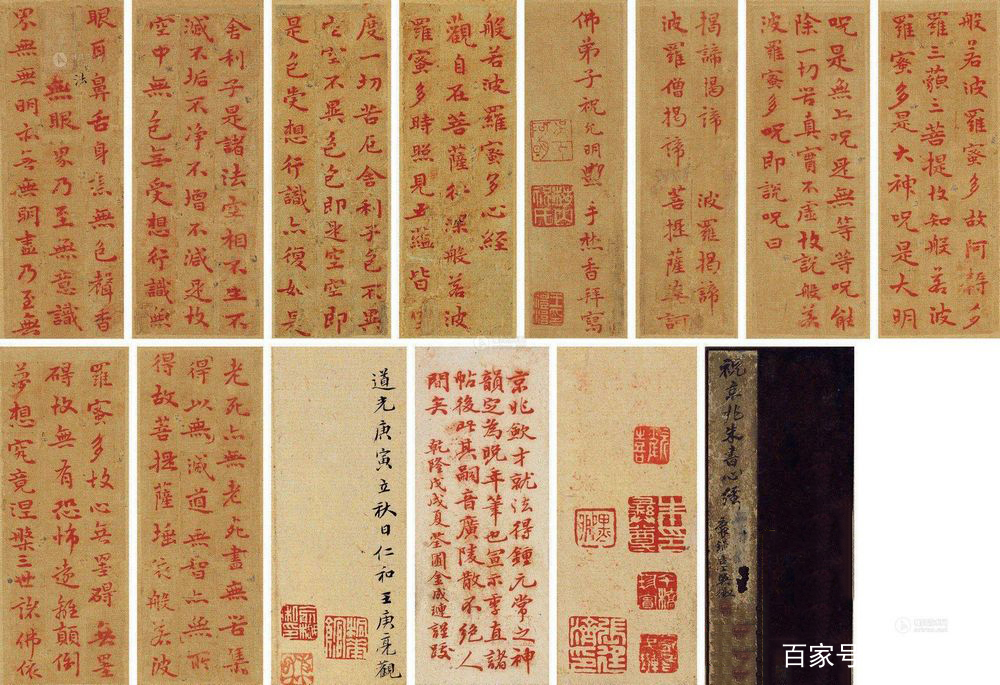 般若波羅蜜多心經
觀自在菩薩行深般若波
羅蜜多時照見五蘊皆空
度一切苦厄舍利子色不異
空空不異色色即是空空即
是色受想行識亦復如是
舍利子是諸法空相不生不
滅不垢不净不增不減是故
空中無色無受想行識無
眼耳鼻舌身意無色聲香
法
無眼界乃至無意識
界無無明亦无無明盡乃至無
老死亦無老死盡無苦集
得以無滅道無智亦無所
得故菩提薩埵依般若波
羅蜜多故心無罣礙無罣
礙故無有恐怖遠離顛倒
夢想究竟涅槃三世諸佛依
般若波羅蜜多故阿耨多
羅三藐三菩提故知般若波
羅蜜多是大神呪是大明
呪是無上呪是無等等呪能
除一切苦真實不虛故說般若
波羅蜜多呪即說呪曰
揭諦揭諦 波羅揭諦
波羅僧揭諦 菩提薩婆訶
佛弟子祝允明熏手炷香拜寫
道光庚寅立秋日仁和王庚亮觀
京兆歛才就法得鍾元常之神
韻定為晚年筆也宣示季直諸
帖後此其嗣音廣陵散不絕人
間矣 乾隆戊戌夏荃圃金成璉謹跋
祝京兆朱書心經
百家号